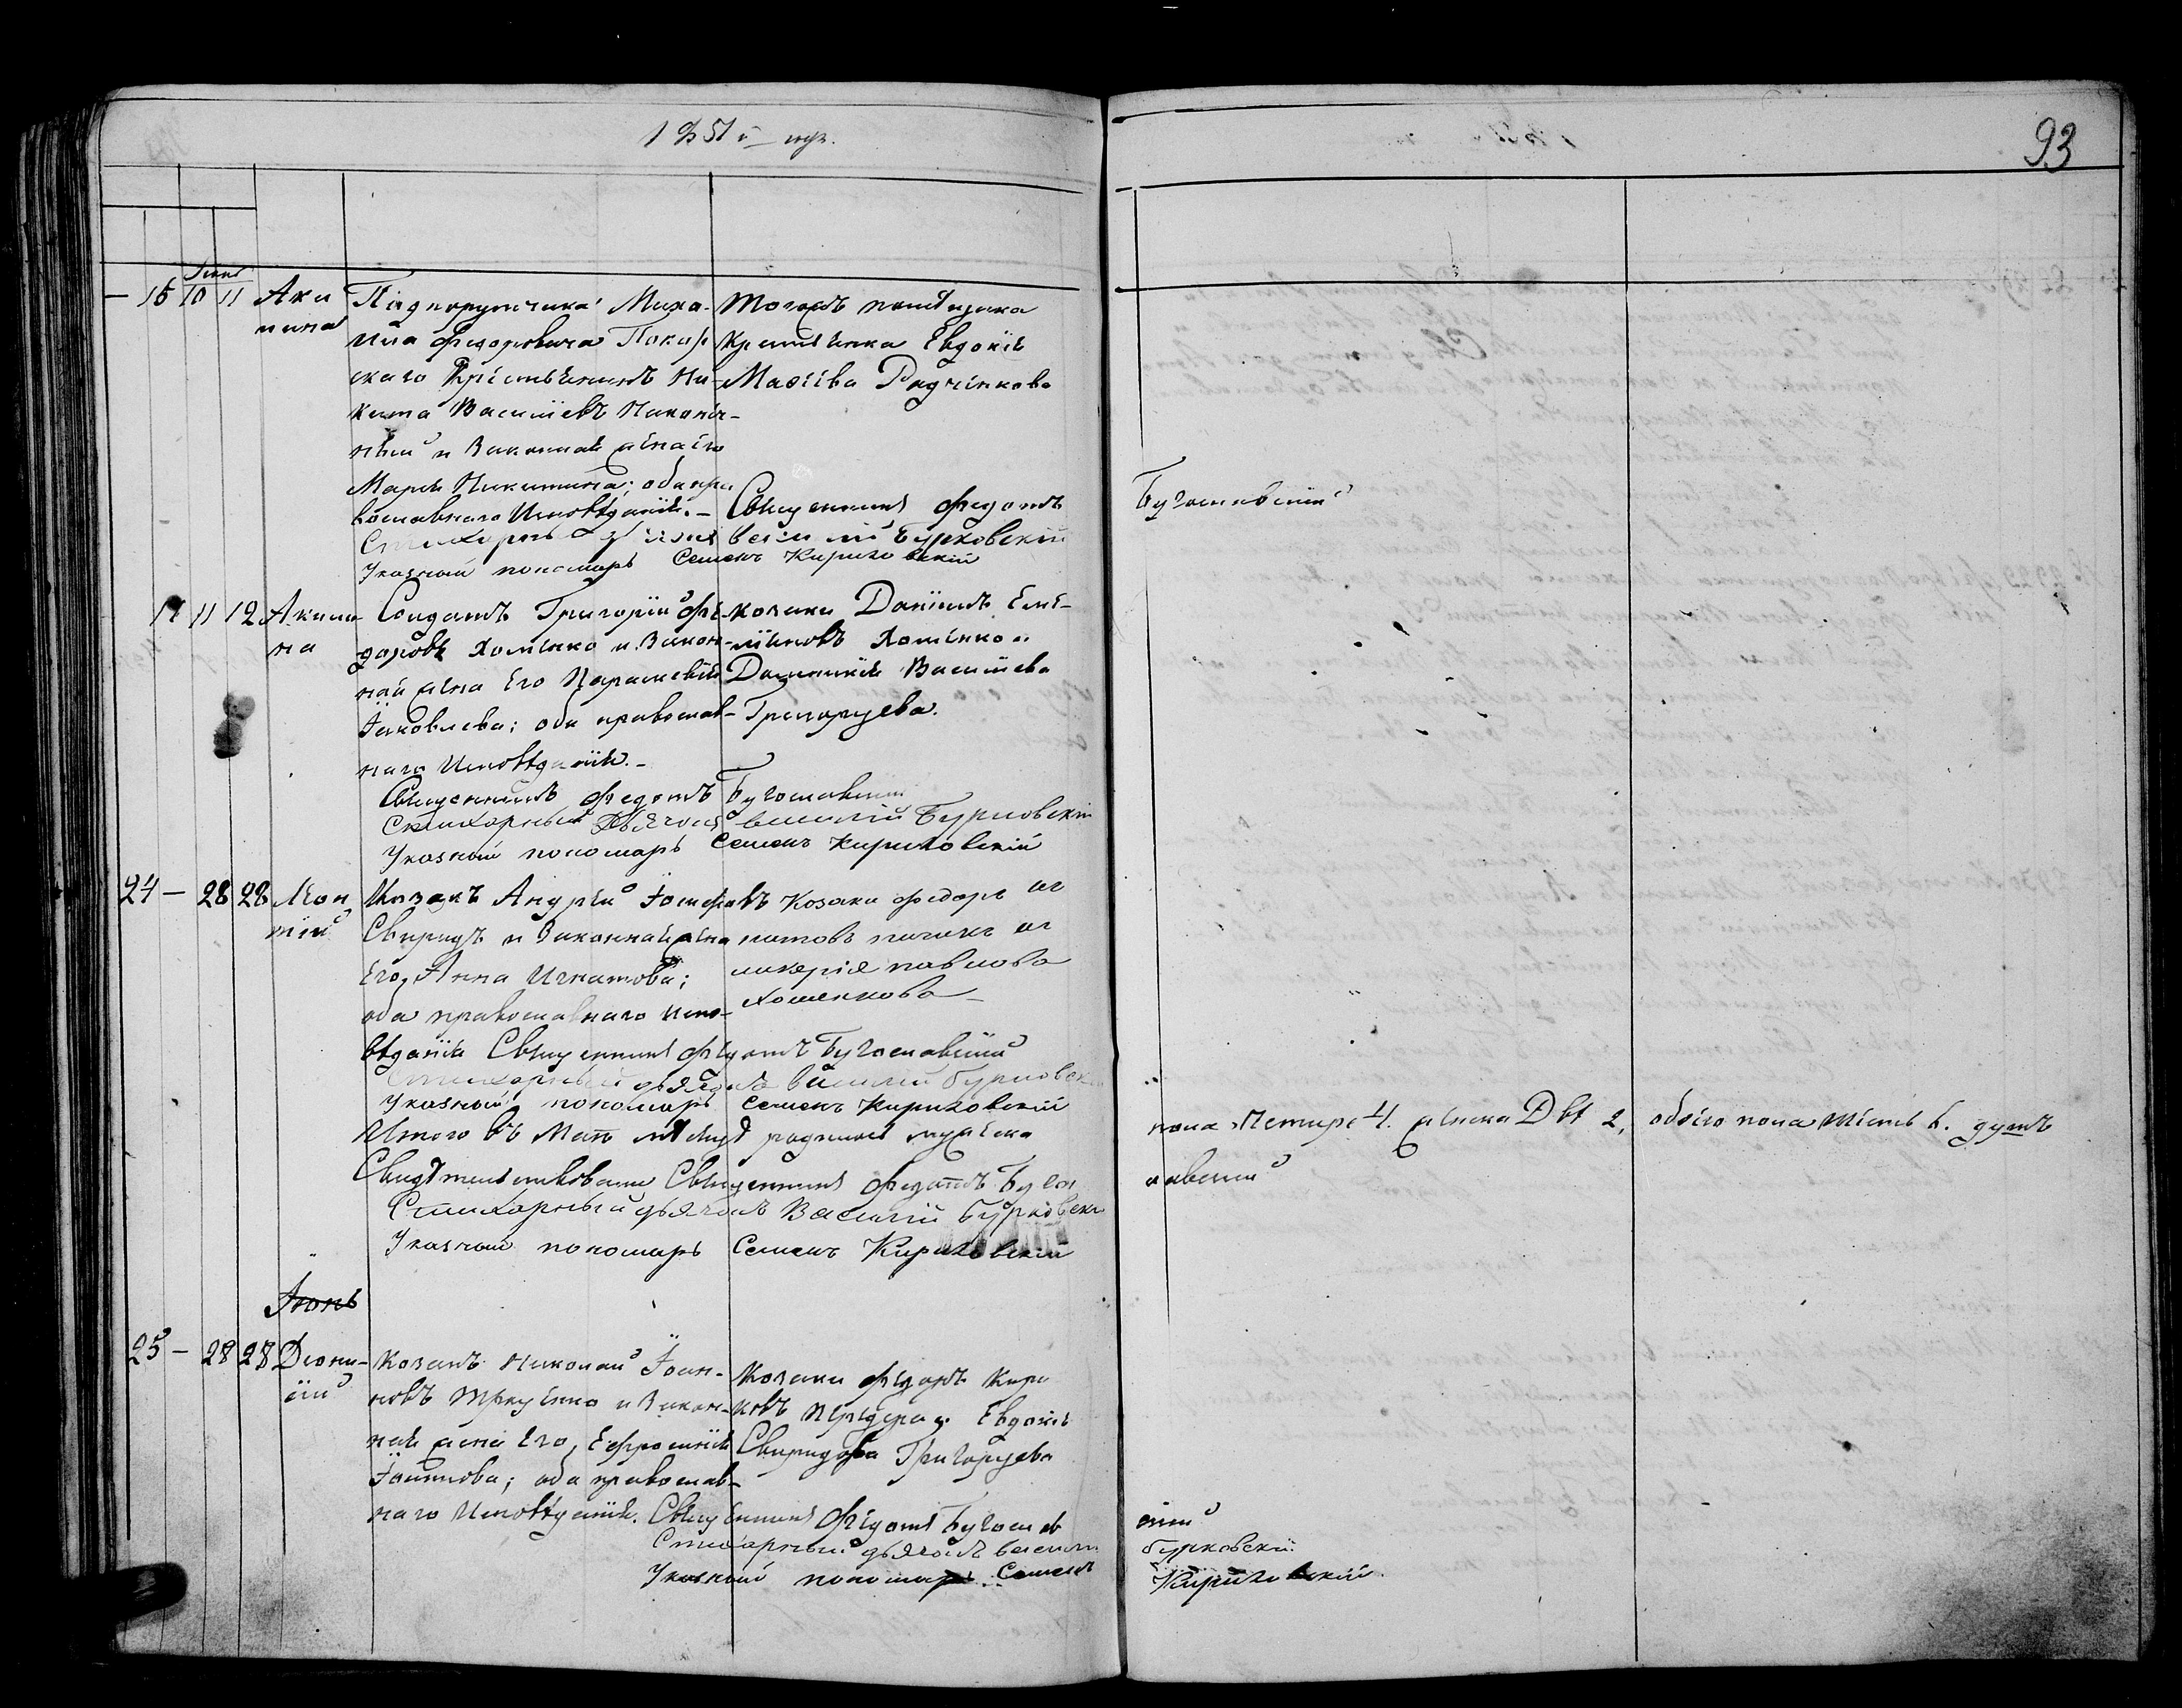 1851 й годъ.
93
Іюнь
— 16 10 11 Аки
лина
Подпорутчика Миха-
ила Федоровича Покор
скаго крестьянинъ Ни-
кита Василіевъ
и законная жена его
Марія Никитина; оба пра
вославнаго Исповѣданія. –
Тогожъ помѣщика
крестьянка Евдокія
Маѳіева Радченкова
Священникъ Федотъ Бугославскій
Василій Бурковскій
Указный пономарь Семенъ Кириловскій
17 11 12 Акили
на
Солдатъ Григорій Фе-
доровъ Хоменко и закон-
ная жена Его Параскевія
Іаковлева; оба православ-
наго Исповѣданія. –
козаки Даніилъ Еме-
ліановъ Хоменко и
Домникія Василіева
Григорцева.
Священникъ Федотъ Бугославскій
Стихарный Дьячокъ Василій Бурковскій
Указный пономарь Семенъ Кириловскій
24 — 28 28 Леон
тій
Козакъ Андрей Іосифовъ
Свиридъ и законная жена
Его, Анна Игнатова;
оба православнаго Испо-
вѣданія
Козаки Федоръ иг
натовъ и
ликерія павлова
Хоменкова
Священникъ Федотъ Бугославскій
Стихарный дьячокъ Василій Бурковскій
Указный пономарь Семенъ Кириловскій
Итого въ Маѣ мѣсяцѣ родилось мужеска пола Четыре 4. женска Двѣ 2, обоего пола шесть 6. душъ
Свидѣтельствовали Священникъ Федотъ Бугославскій
Стихарный дьячокъ Василій Бурковскій
Указный пономарь Семенъ Кириловскій
Іюнь
25 — 28 28 Діони-
сій
Козакъ Николай Іоан-
новъ и закон-
ная жена Его, Ефросинія
Іоаннова; оба православ-
наго Исповѣданія.
Козаки Федоръ Кири
ловъ Передерій и Евдокія
Свиридова Григорцева
Священникъ Федотъ Бугославскій
Стихарный дьячокъ Василій Бурковскій
Указный пономарь Семенъ Кириловскій